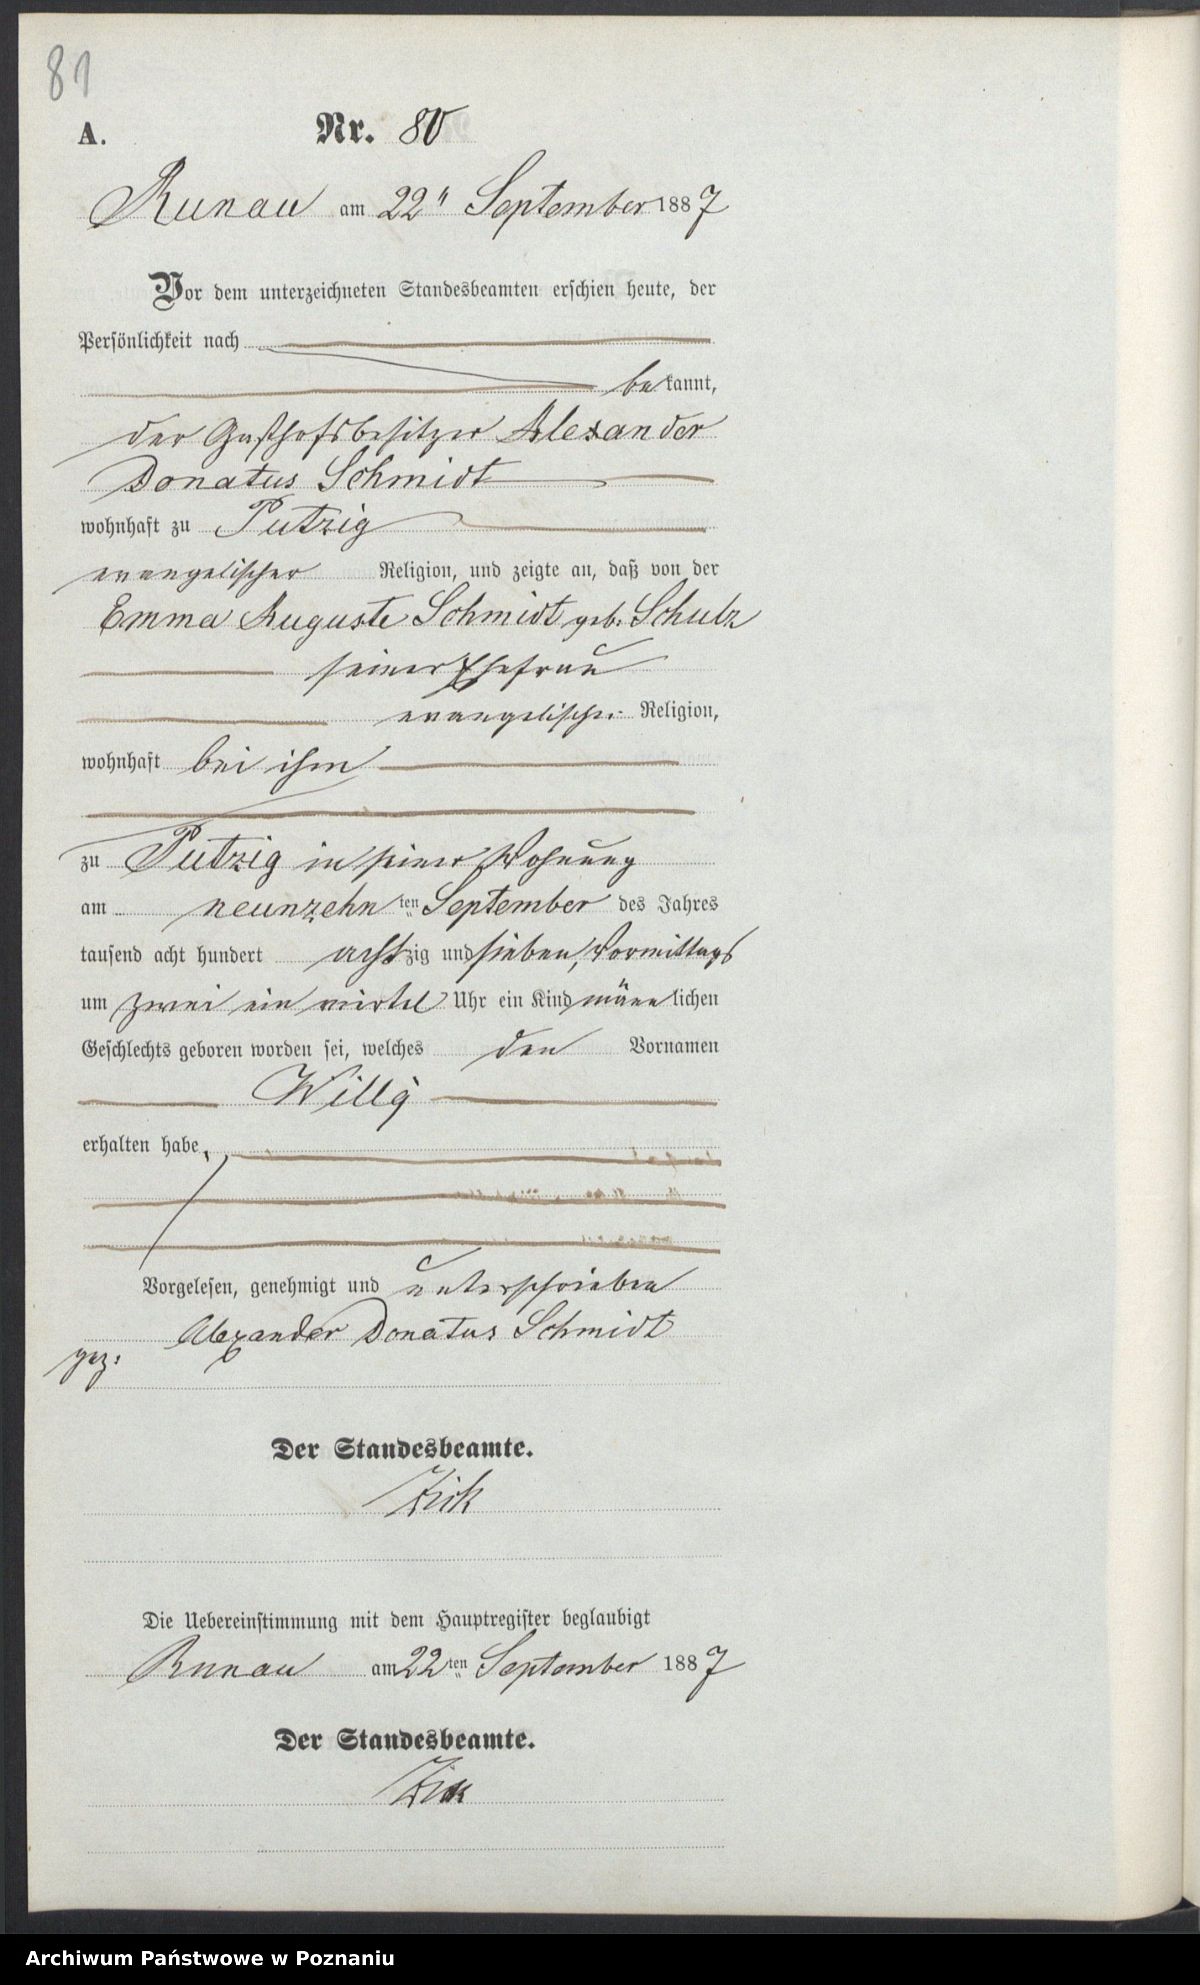 81
A. Nr. 80
Runau am 22" September 1887
Vor dem unterzeichneten Standesbeamten erschien heute, der
Persönlichkeit nach
bekannt,
der Gasthofsbesitzer Alexander
Donatus Schmidt
wohnhaft zu Putzig
evangelischer Religion, und zeigte an, daß von der
Emma Auguste Schmidt geb. Schulz
seiner Ehefrau
evangelischer Religion,
wohnhaft bei ihm
zu Putzig in seiner Wohnung
am neunzehnten September des Jahres
tausend acht hundert achtzig und sieben, Vormittags
um zwei ein viertel Uhr ein Kind männlichen
Geschlechts geboren worden sei, welches den Vornamen
Willy
erhalten habe,
Vorgelesen, genehmigt und unterschrieben
Alexander Donatus Schmidt
gez:
Der Standesbeamte.
Die Uebereinstimmung mit dem Hauptregister beglaubigt
Runau am 22ten September 1887
Der Standesbeamte.
Archiwum Państwowe w Poznaniu